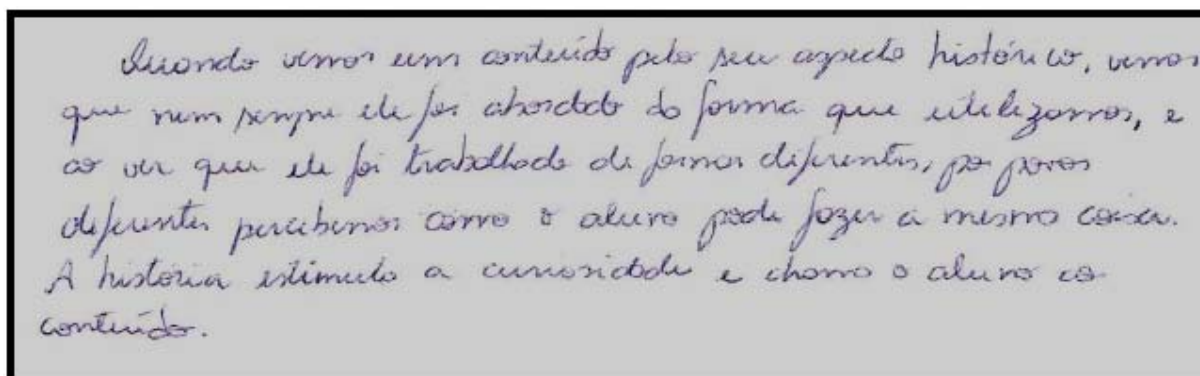 Quando vemos um conteúdo pelo seu aspecto histórico, vemos
que nem sempre ele foi abordado da forma que utilizamos, e
ao ver que ele foi trabalhado de formas diferentes, por povos
diferentes percebemos como o aluno pode fazer a mesma coisa.
A história estimula a curiosidade e chama o aluno ao
conteúdo.